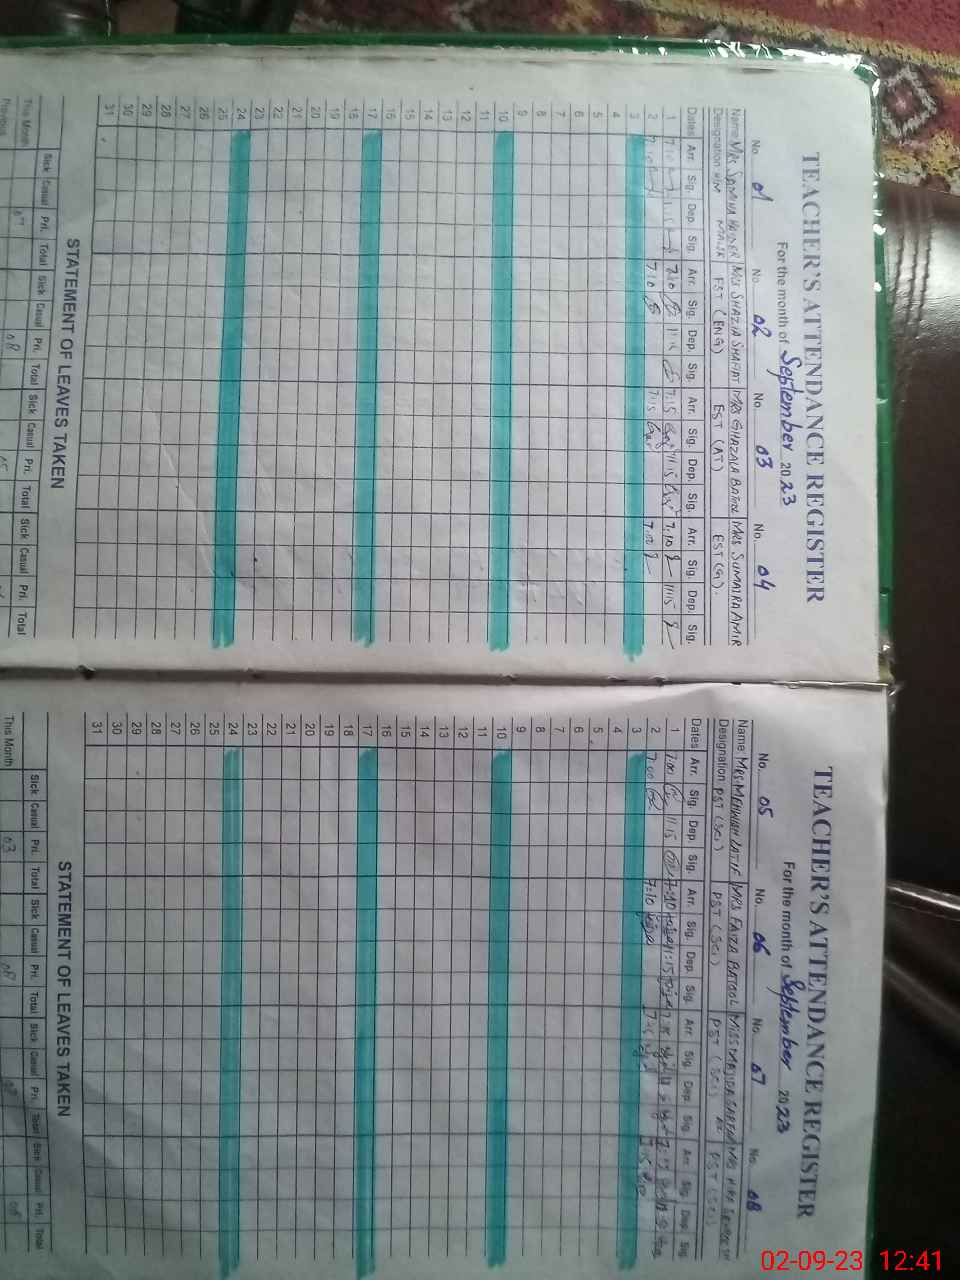 TEACHER'S ATTENDANCE REGISTER
For the month of September 2023
No. 01 No. 02 No. 03 No. 04
Name Mrs SHAZIA SHAFAT Mrs GHAZALA BATOOL Mrs SUMAIRA AMIR
Designation EST (ENG) EST (AT) EST (G).
Dates Arr. Sig. Dep. Sig. Arr. Sig. Dep. Sig. Arr. Sig. Dep. Sig. Arr. Sig. Dep. Sig.
1 7:10 7:10 11:15 7:15 11:15 7:10 11:15
2 7:10 7:10 7:15
3
4
5
6
7
8
9
10
11
12
13
14
15
16
17
18
19
20
21
22
23
24
25
26
27
28
29
30
31
STATEMENT OF LEAVES TAKEN
Sick Casual Pri. Total Sick Casual Pri. Total Sick Casual Pri. Total Sick Casual Pri. Total
This Month 07 08 05
Previous
TEACHER'S ATTENDANCE REGISTER
For the month of September 2023
No. 05 No. 06 No. 07 No. 08
Name Mrs. MEHWISH LATIF Mrs FAIZA BATOOL MISS MAJIDA Mrs HIRA
Designation PST (SCI) PST (SCI) PST (SCI) PST (SCI)
Dates Arr. Sig. Dep. Sig. Arr. Sig. Dep. Sig. Arr. Sig. Dep. Sig. Arr. Sig. Dep. Sig.
1 7:00 11:15 7:10 11:15
2 7:00 7:10 7:15 7:15
3
4
5
6
7
8
9
10
11
12
13
14
15
16
17
18
19
20
21
22
23
24
25
26
27
28
29
30
31
STATEMENT OF LEAVES TAKEN
Sick Casual Pri. Total Sick Casual Pri. Total Sick Casual Pri. Total Sick Casual Pri. Total
This Month 03 08
02-09-23 12:41